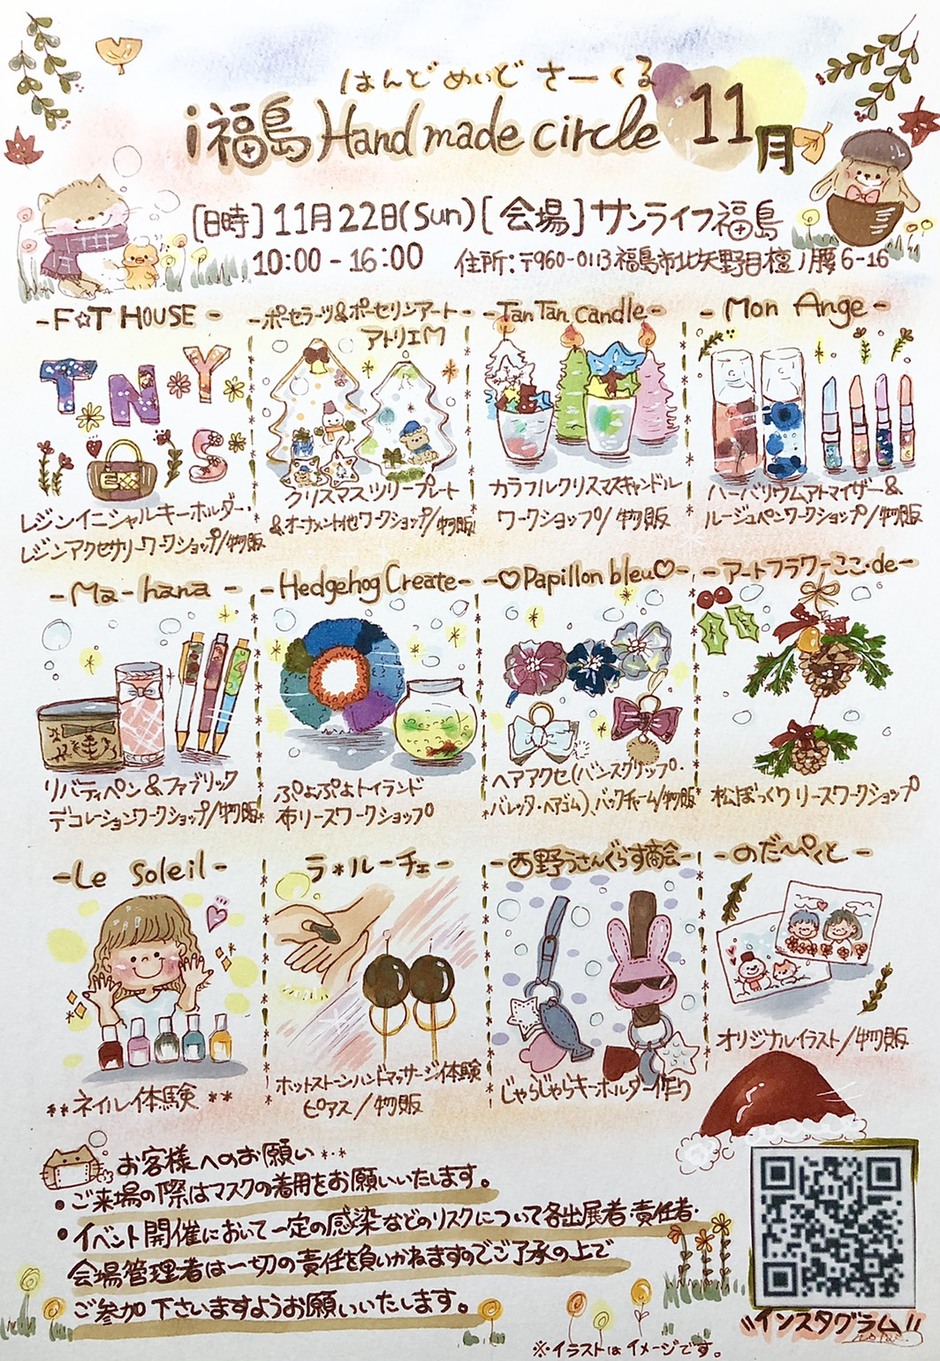 はんどめいどさーくる
i福島Hand made circle 11月
[日時]11月22日(Sun)[会場]サンライフ福島
10:00-16:00 住所:〒960-0113福島市北矢野目檀ノ腰6-16
-F☆T HOUSE-
TNY
S
レジンイニシャルキーホルダー・
レジンアクセサリーワークショップ/物販
-ポーセラーツ&ポーセリンアート-
アトリエM
クリスマスツリープレート
&オーナメント他ワークショップ/物販
-TanTan candle-
カラフルクリスマスキャンドル
ワークショップ/物販
-Mon Ange-
ハーバリウムアトマイザー&
ルージュペンワークショップ/物販
-Ma-hana-
リバティペン&ファブリック
デコレーションワークショップ/物販
-Hedgehog Create-
ぷよぷよトイランド
布リースワークショップ
-♡Papillon bleu♡-
ヘアアクセ(バンスクリップ・
バレッタ・ヘアゴム)、バッグチャーム/物販
-アートフラワーここ・de-
松ぼっくりリースワークショップ
-Le Soleil-
**ネイル体験**
-ラ*ルーチェ-
ホットストーンハンドマッサージ体験
ピアス/物販
-西野うさんぐらす商会-
じゃらじゃらキーホルダー作り
-のだ〜ぺくと-
オリジナルイラスト/物販
お客様へのお願い**
・ご来場の際はマスクの着用をお願いいたします。
・イベント開催において一定の感染などのリスクについて各出展者・責任者・
会場管理者は一切の責任を負いかねますのでご了承の上で
ご参加下さいますようお願いいたします。
"インスタグラム"
※イラストはイメージです。